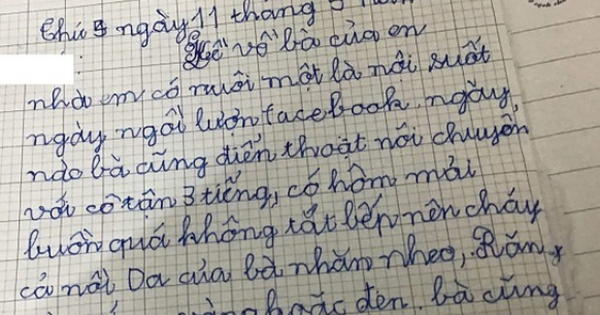 thứ 5 ngày 11 tháng
Kể về bà của en
nhà em có nuôi một là nôi suốt
ngày ngồi lướn facebook, ngày
nào bà cũng điến thoạt nôi chuyến
với cô tận 3 tiếng, có hôm mải
buồn quá không tắt bếp nên cháy
cả nồi Da của bà nhăn nheo, Răn
đen, bà cũng